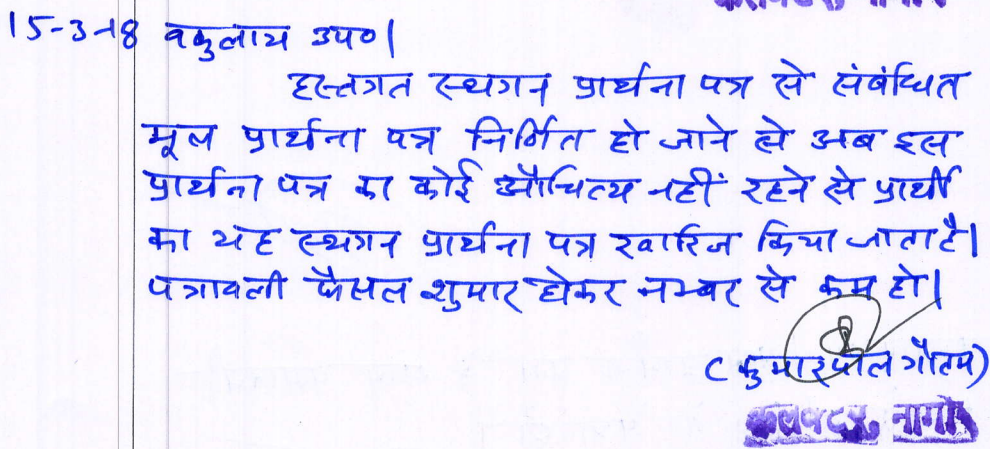 कलक्टर नागौर
15-3-18 वकुलाय उप०।
हस्तगत स्थगन प्रार्थना पत्र से संबंधित
मूल प्रार्थना पत्र निर्मित हो जाने से अब इस
प्रार्थना पत्र का कोई औचित्य नहीं रहने से प्रार्थी
का यह स्थगन प्रार्थना पत्र खारिज किया जाता है।
पत्रावली फैसल शुमार होकर नम्बर से कम हो।
(कुमारपाल गौतम)
कलक्टर, नागौर